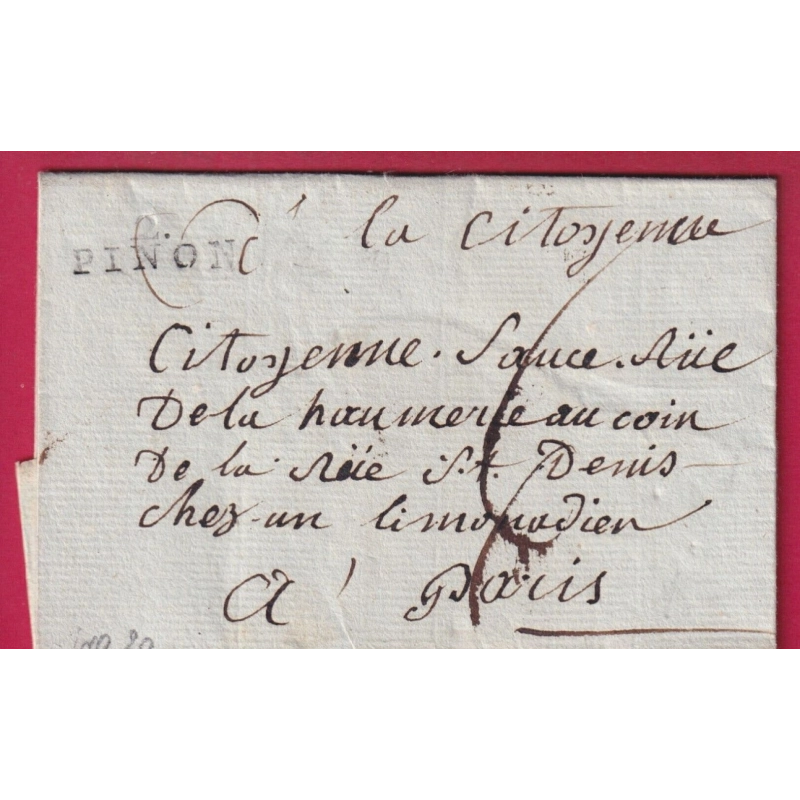 2.
PINON
a' la Citoyenne
Citoyenne. Sauce. Rüe
De la haumerie au coin
De la Rüe St. Denis
chez un limonadier
a' Paris